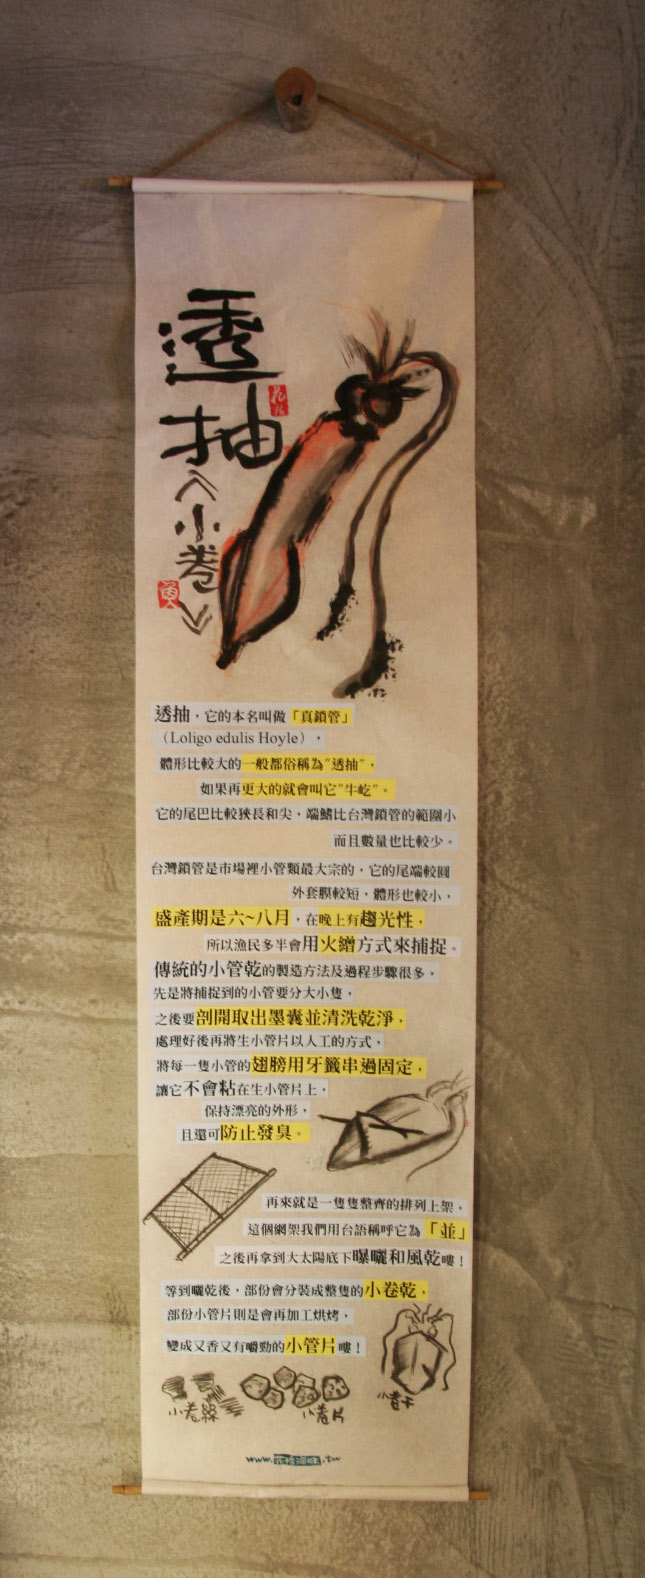 透抽
小卷
透抽,它的本名叫做「真鎖管」
(Loligo edulis Hoyle),
體形比較大的一般都俗稱為"透抽",
如果再更大的就會叫它"牛屹"。
它的尾巴比較狹長和尖,端鰭比台灣鎖管的範圍小
而且數量也比較少。
台灣鎖管是市場裡小管類最大宗的,它的尾端較圓
外套膜較短,體形也較小,
盛產期是六~八月,在晚上有趨光性,
所以漁民多半會用火繒方式來捕捉。
傳統的小管乾的製造方法及過程步驟很多,
先是將捕捉到的小管要分大小隻,
之後要剖開取出墨囊並清洗乾淨,
處理好後再將生小管片以人工的方式,
將每一隻小管的翅膀用牙籤串過固定,
讓它不會粘在生小管片上,
保持漂亮的外形,
且還可防止發臭。
再來就是一隻隻整齊的排列上架,
這個網架我們用台語稱呼它為「並」
之後再拿到大太陽底下曝曬和風乾嘍!
等到曬乾後,部份會分裝成整隻的小卷乾,
部份小管片則是會再加工烘烤,
變成又香又有嚼勁的小管片嘍!
小卷干
小卷絲
小卷片
www. .tw